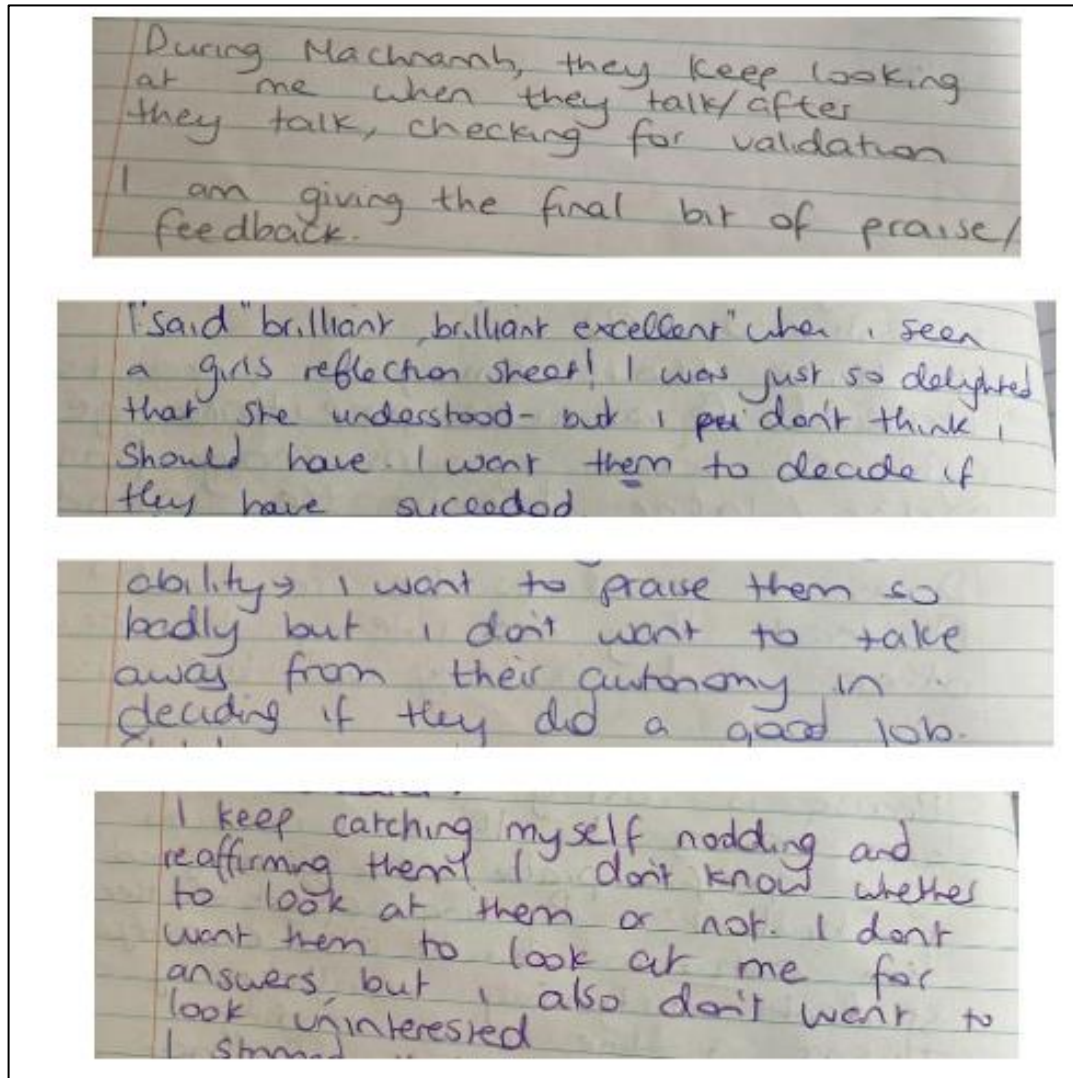 During Machnamh, they keep looking
at me when they talk/after
they talk, checking for validation
I am giving the final bit of praise/
feedback.
I said "brilliant, brilliant excellent" when i seen
a girls reflection sheet! I was just so delighted
that she understood - but i don't think i
should have. I want them to decide if
they have suceeded
ability → I want to praise them so
badly but i don't want to take
away from their autonomy in
deciding if they did a good job.
I keep catching myself nodding and
reaffirming them! I don't know whether
to look at them or not. I dont
want them to look at me for
answers, but i also don't want to
look uninterested
I